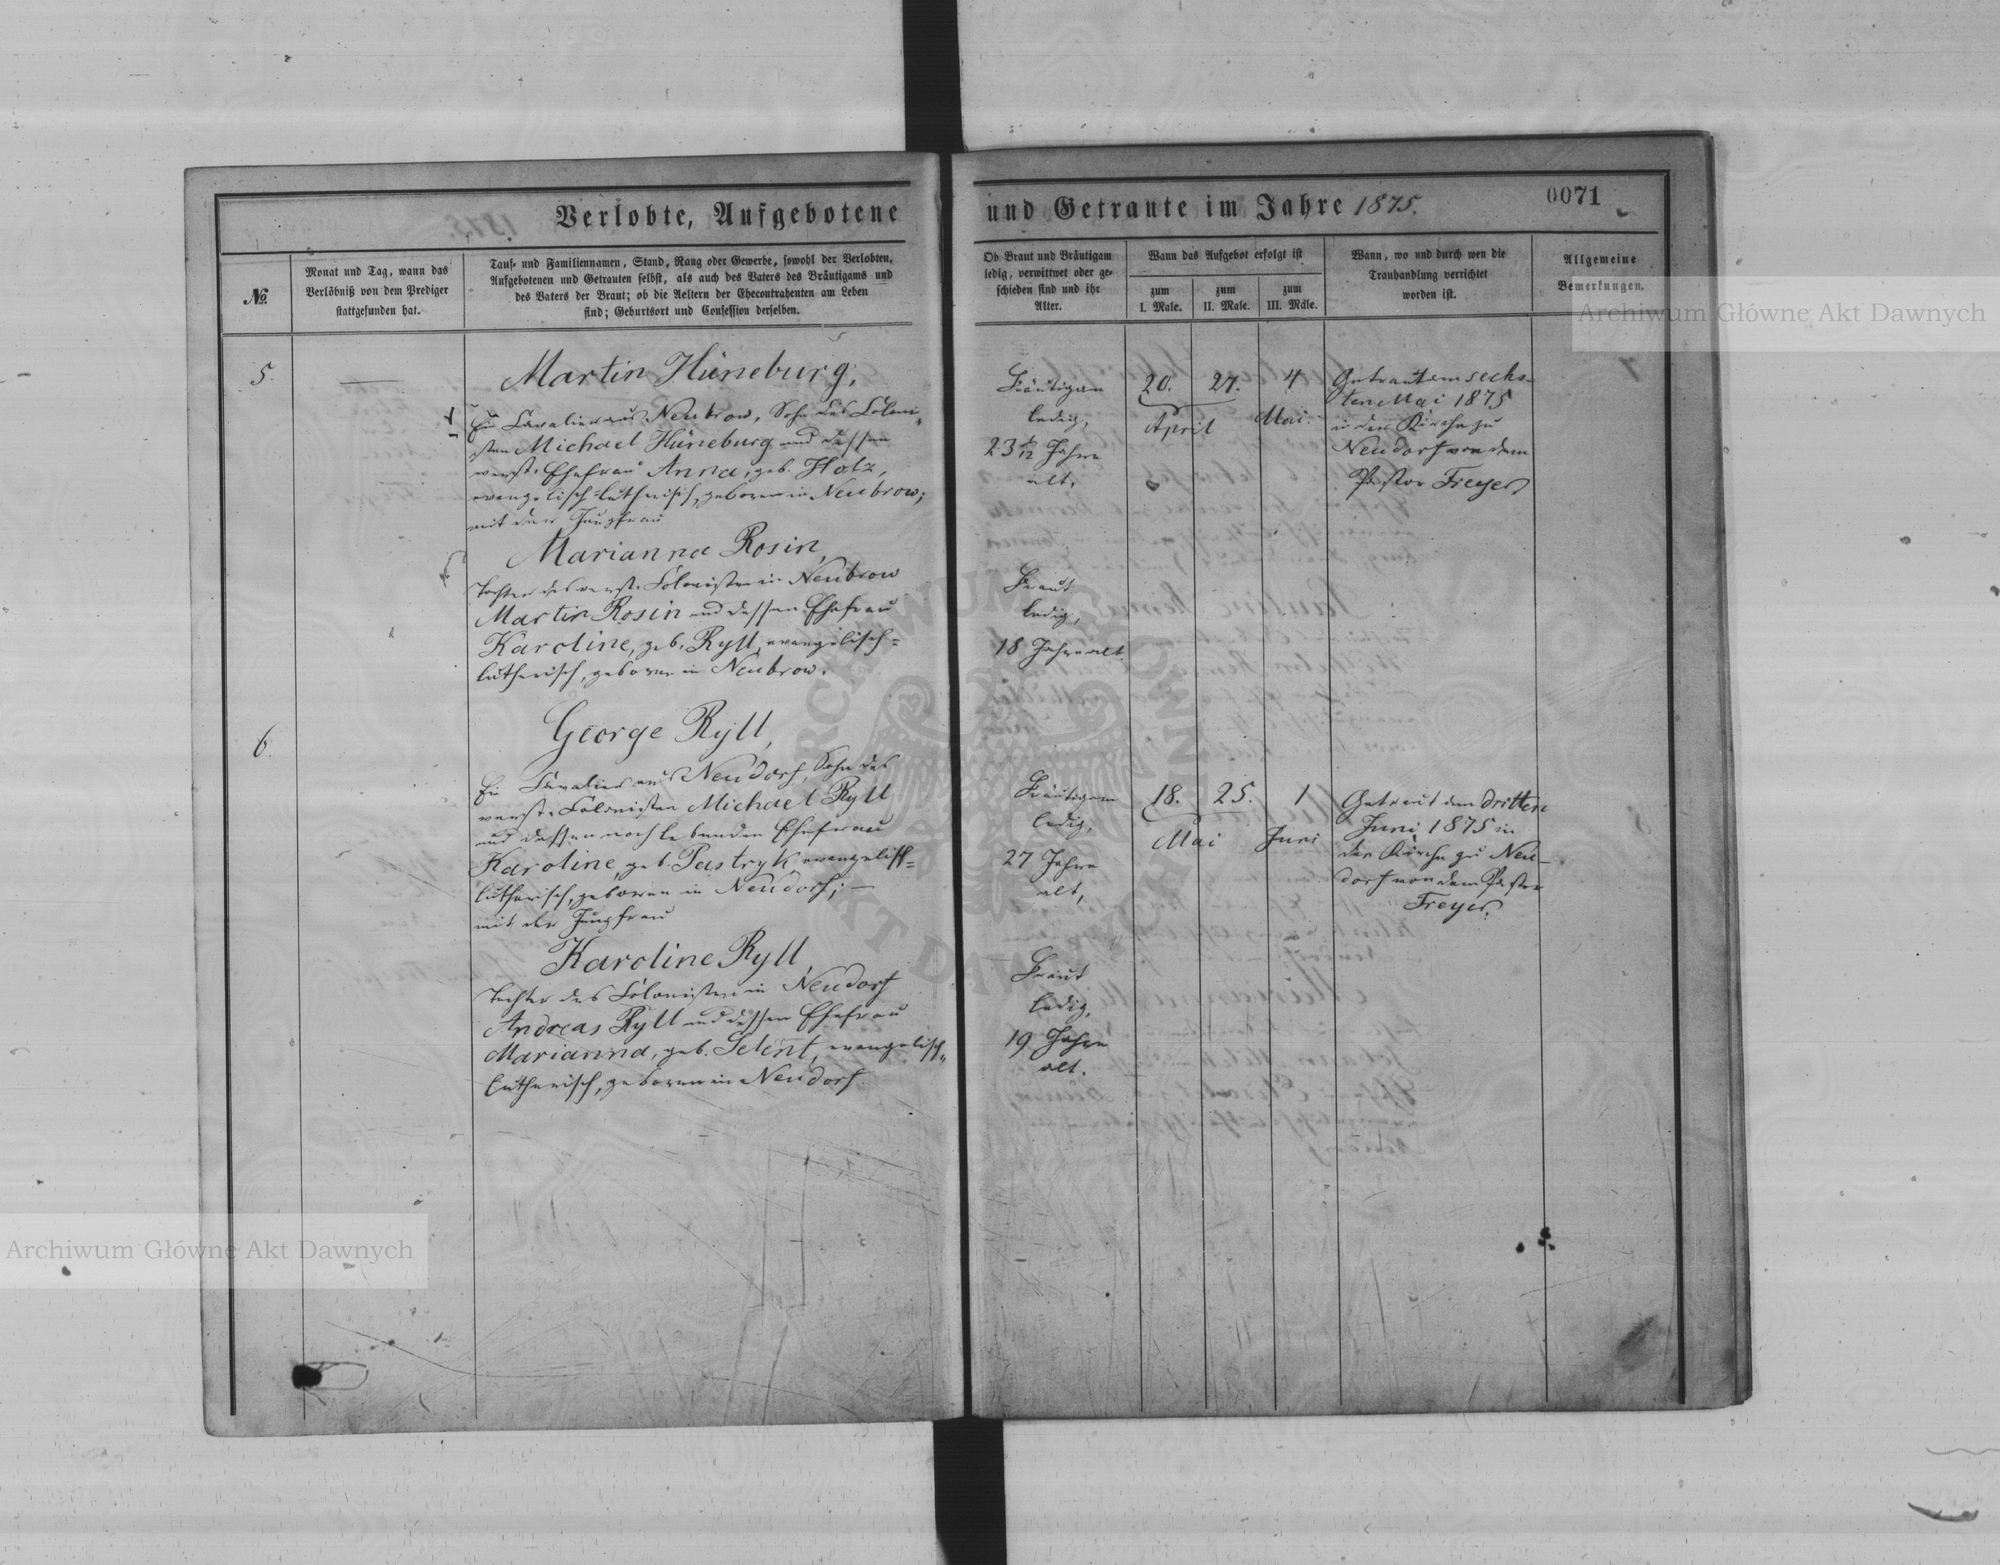 Verlobte, Aufgebotene und Getraute im Jahre 1875.
0071
№
Monat und Tag, wann das
Verlöbniß von dem Prediger
stattgefunden hat.
Tauf- und Familiennamen, Stand, Rang oder Gewerbe, sowohl der Verlobten,
Aufgebotenen und Getrauten selbst, als auch des Vaters des Bräutigams und
des Vaters der Braut; ob die Aeltern der Ehecontrahenten am Leben
sind; Geburtsort und Confession derselben.
Ob Braut und Bräutigam
ledig, verwittwet oder ge-
schieden sind und ihr
Alter.
Wann das Aufgebot erfolgt ist
zum
I. Male.
zum
II. Male.
zum
III. Male.
Wann, wo und durch wen die
Trauhandlung verrichtet
worden ist.
Allgemeine
Bemerkungen.
5.
Martin Hüneburg,
Ein Cavalier aus Neubrow, Sohn des Coloni-
sten Michael Hüneburg und dessen
verst. Ehefrau Anna, geb. Holz,
evangelisch-lutherisch, geboren in Neubrow;
mit der Jungfrau
Marianna Rosin,
Tochter des verst. Colonisten in Neubrow
Martin Rosin und dessen Ehefrau
Karoline, geb. Ryll, evangelisch-
lutherisch, geboren in Neubrow.
Bräutigam
ledig,
23 Jahre
alt,
Braut
ledig,
18 Jahre alt.
20. 27.
April
4
Mai.
Getraut am sechs-
ten Mai 1875
in der Kirche zu
Neudorf von dem
Pastor Freyer
6.
George Ryll,
Ein Cavalier aus Neudorf, Sohn des
verst. Colonisten Michael Ryll
und dessen noch lebenden Ehefrau
Karoline, geb. Pastryk, evangelisch-
lutherisch, geboren in Neudorf; —
mit der Jungfrau
Karoline Ryll,
Tochter des Colonisten in Neudorf
Andreas Ryll und dessen Ehefrau
Marianna, geb. Selent, evangelisch-
lutherisch, geboren in Neudorf.
Bräutigam
ledig,
27 Jahre
alt,
Braut
ledig,
19 Jahre
alt.
18. 25.
Mai
1
Juni
Getraut den dritten
Juni 1875 in
der Kirche zu Neu-
dorf von dem Pastor
Freyer.
Archiwum Główne Akt Dawnych
Archiwum Główne Akt Dawnych
ARCHIWUM GŁÓWNE AKT DAWNYCH